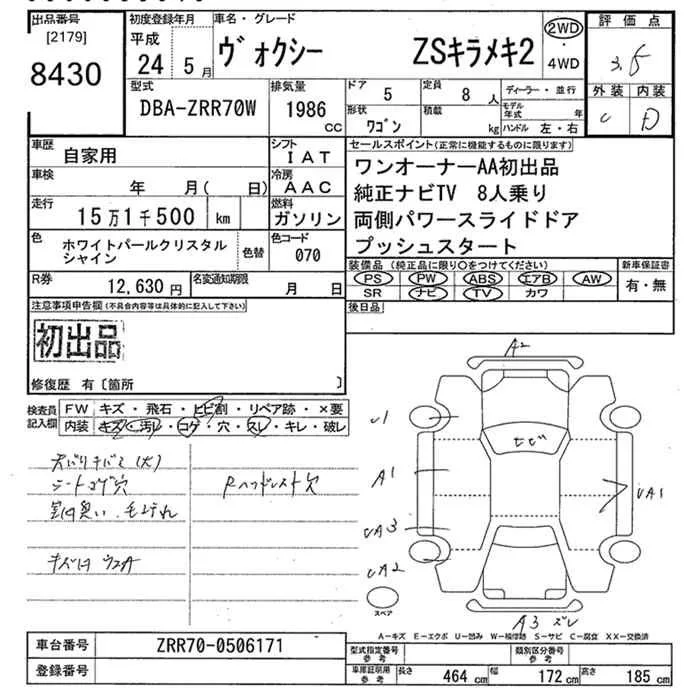 出品番号
[2179]
8430
初度登録年月
平成
24 5月
車名・グレード
ヴォクシー ZSキラメキ2
2WD
・
4WD
評価点
3.5
外装 内装
C D
型式
DBA-ZRR70W
排気量
1986
cc
ドア
5
定員
8 人
ディーラー・並行
形状
ワゴン
積載
kg
モデル年式 年
ハンドル 左・右
車歴
自家用
シフト
IAT
セールスポイント(正常に機能するものに限ります)
ワンオーナーAA初出品
純正ナビTV 8人乗り
両側パワースライドドア
プッシュスタート
車検
年 月( 日)
冷房
AAC
走行
15万1千500 km
燃料
ガソリン
色
ホワイトパールクリスタル
シャイン
色替
色コード
070
装備品(純正品に限り○をつけてください)
PS PW ABS エアB AW
SR ナビ TV カワ
新車保証書
有・無
R券
12,630円
名変通知期限
月 日
後日品
注意事項申告欄(不具合内容等は具体的に記入して下さい)
初出品
修復歴 有〔箇所 〕
検査員
記入欄
FW キズ・飛石・ヒビ割・リペア跡・×要
内装 キズ・汚レ・コゲ・穴・スレ・キレ・破レ
シートコゲ穴
Rヘッドレスト穴
A2
U1
ヒビ
A1
UA1
UA3
UA2
スペア
A3 ズレ
A-キズ E-エクボ U-凹み W-補修跡 S-サビ C-腐食 XX-交換済
車台番号
ZRR70-0506171
登録番号
型式指定番号
参考
類別区分番号
参考
車庫証明用
参考
長さ
464 cm
幅
172 cm
高さ
185 cm